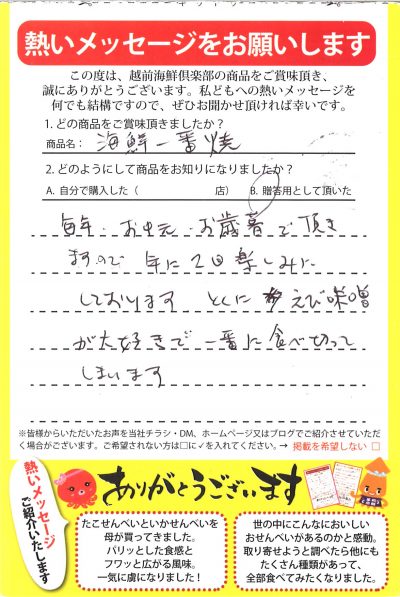 熱いメッセージをお願いします
この度は、越前海鮮倶楽部の商品をご賞味頂き、
誠にありがとうございます。私どもへの熱いメッセージを
何でも結構ですので、ぜひお聞かせ頂ければ幸いです。
1. どの商品をご賞味頂きましたか？
商品名： 海鮮一番焼
2. どのようにして商品をお知りになりましたか？
A. 自分で購入した（ 店） B. 贈答用として頂いた
毎年・お中元・お歳暮で頂き
ますので 年に2回楽しみに
しております とくに えび味噌
が大好きで一番に食べ切って
しまいます
※皆様からいただいたお声を当社チラシ・DM、ホームページ又はブログでご紹介させていただ
く場合がございます。ご希望されない方は□に✓を入れてください。→ 掲載を希望しない □
熱いメッセージ
ご紹介いたします
ありがとうございます
たこせんべいといかせんべいを
母が買ってきました。
パリッとした食感と
フワッと広がる風味。
一気に虜になりました！
世の中にこんなにおいしい
おせんべいがあるのかと感動。
取り寄せようと調べたら他にも
たくさん種類があって、
全部食べてみたくなりました。